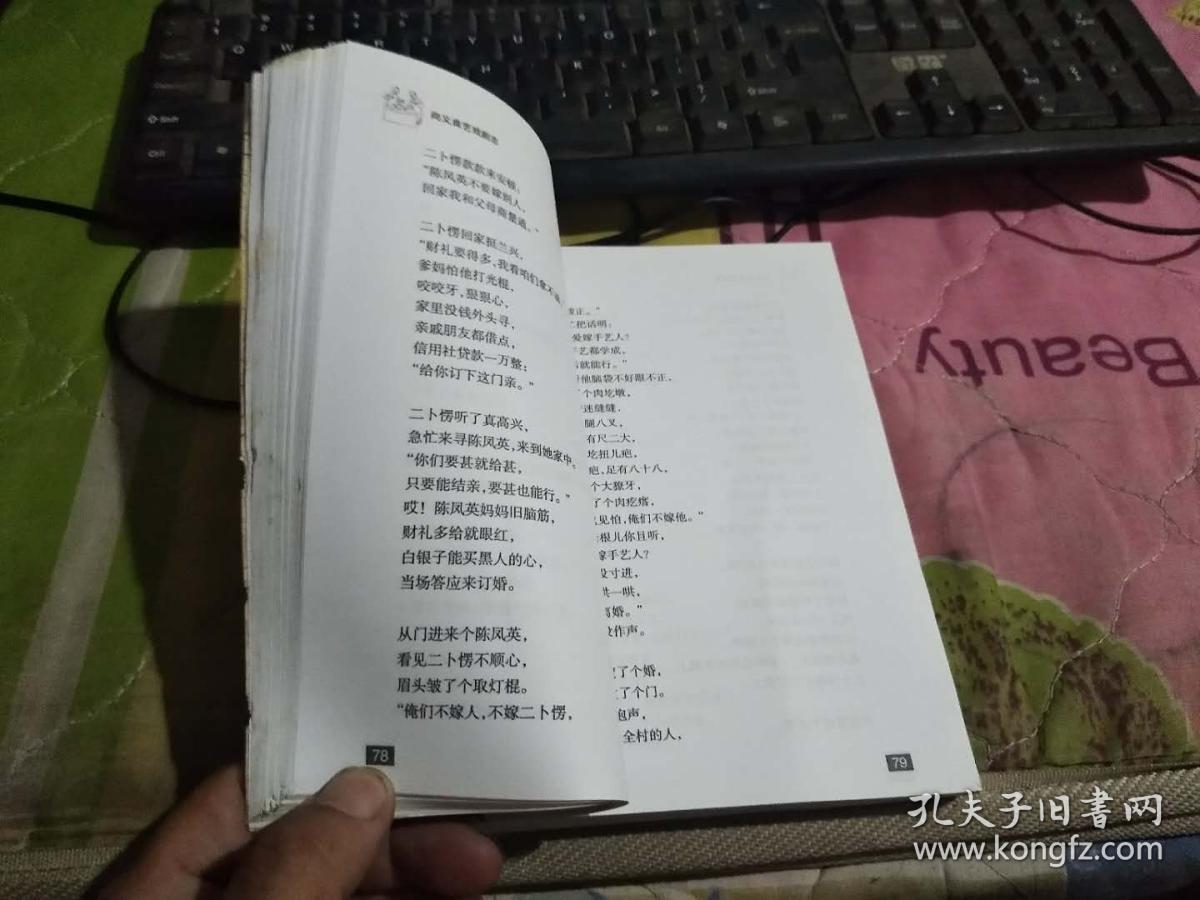 商义曲艺戏剧志
二卜愣款款来安顿：
“陈凤英不要嫁别人，
回家我和父母商量通。”
二卜愣回家挺兰兴，
“财礼要得多，我看咱们拿不
爹妈怕他打光棍，
咬咬牙，狠狠心，
家里没钱外头寻，
亲戚朋友都借点，
信用社贷款一万整；
“给你订下这门亲。”
二卜愣听了真高兴，
急忙来寻陈凤英，来到她家中。
“你们要甚就给甚，
只要能结亲，要甚也能行。”
哎！陈凤英妈妈旧脑筋，
财礼多给就眼红，
白银子能买黑人的心，
当场答应来订婚。
从门进来个陈凤英，
看见二卜愣不顺心，
眉头皱了个取灯棍。
“俺们不嫁人，不嫁二卜愣，
78
正。”
把话明：
爱嫁手艺人？
艺都学成，
就能行。”
他脑袋不好眼不正，
个肉圪墩，
迷缝缝，
腿八叉，
有尺二大，
圪扭儿疤，
疤，足有八十八，
个大獠牙，
了个肉疙瘩，
见怕，俺们不嫁他。”
根儿你且听，
嫁手艺人？
寸进，
哄一哄，
离婚。”
作声。
了个婚，
了个门。
炮声，
全村的人，
79
Beauty
Shift
Ctrl
孔夫子旧書网
www.kongfz.com